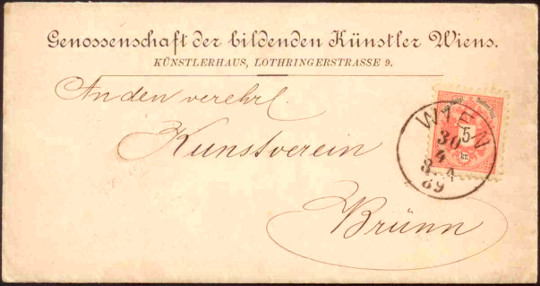 Genossenschaft der bildenden Künstler Wiens.
KÜNSTLERHAUS, LOTHRINGERSTRASSE 9.
An den verehrl.
Kunstverein
Brünn
WIEN
30
4
8-4
89
5
kr